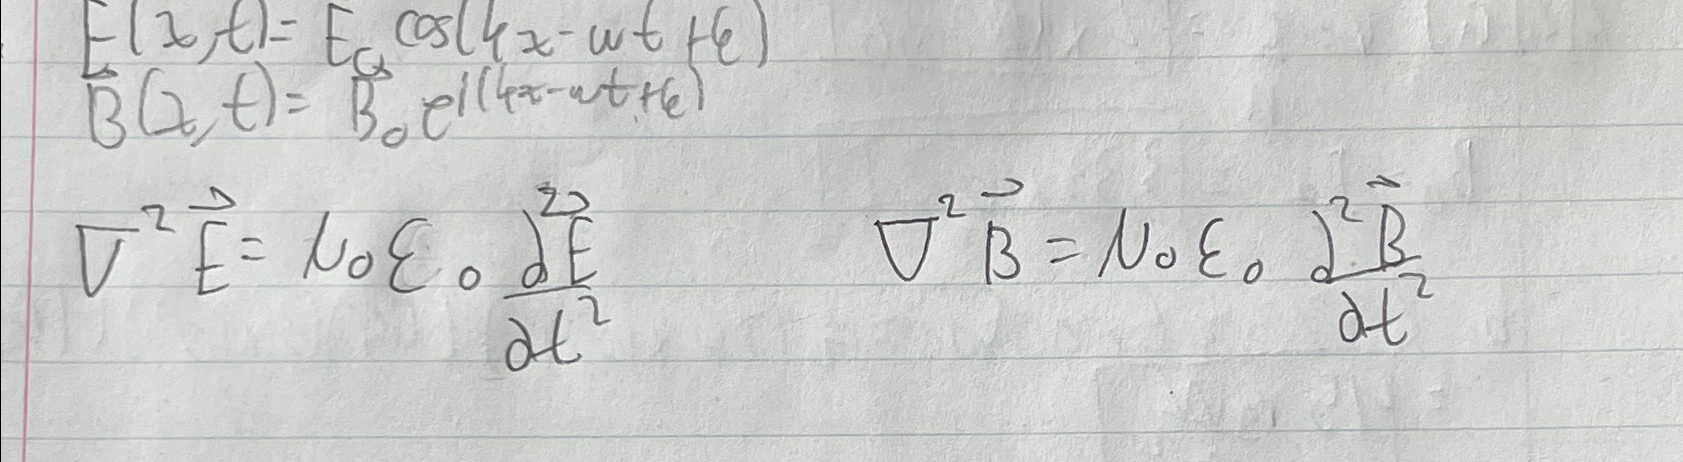 E(x,t)= E₀ cos(kx-ωt+φ)
B⃗(x,t)= B⃗₀ eⁱ⁽ᵏˣ⁻ωᵗ⁺φ⁾
∇²E⃗ = μ₀ε₀ ∂²E⃗/∂t² ∇²B⃗ = μ₀ε₀ ∂²B⃗/∂t²